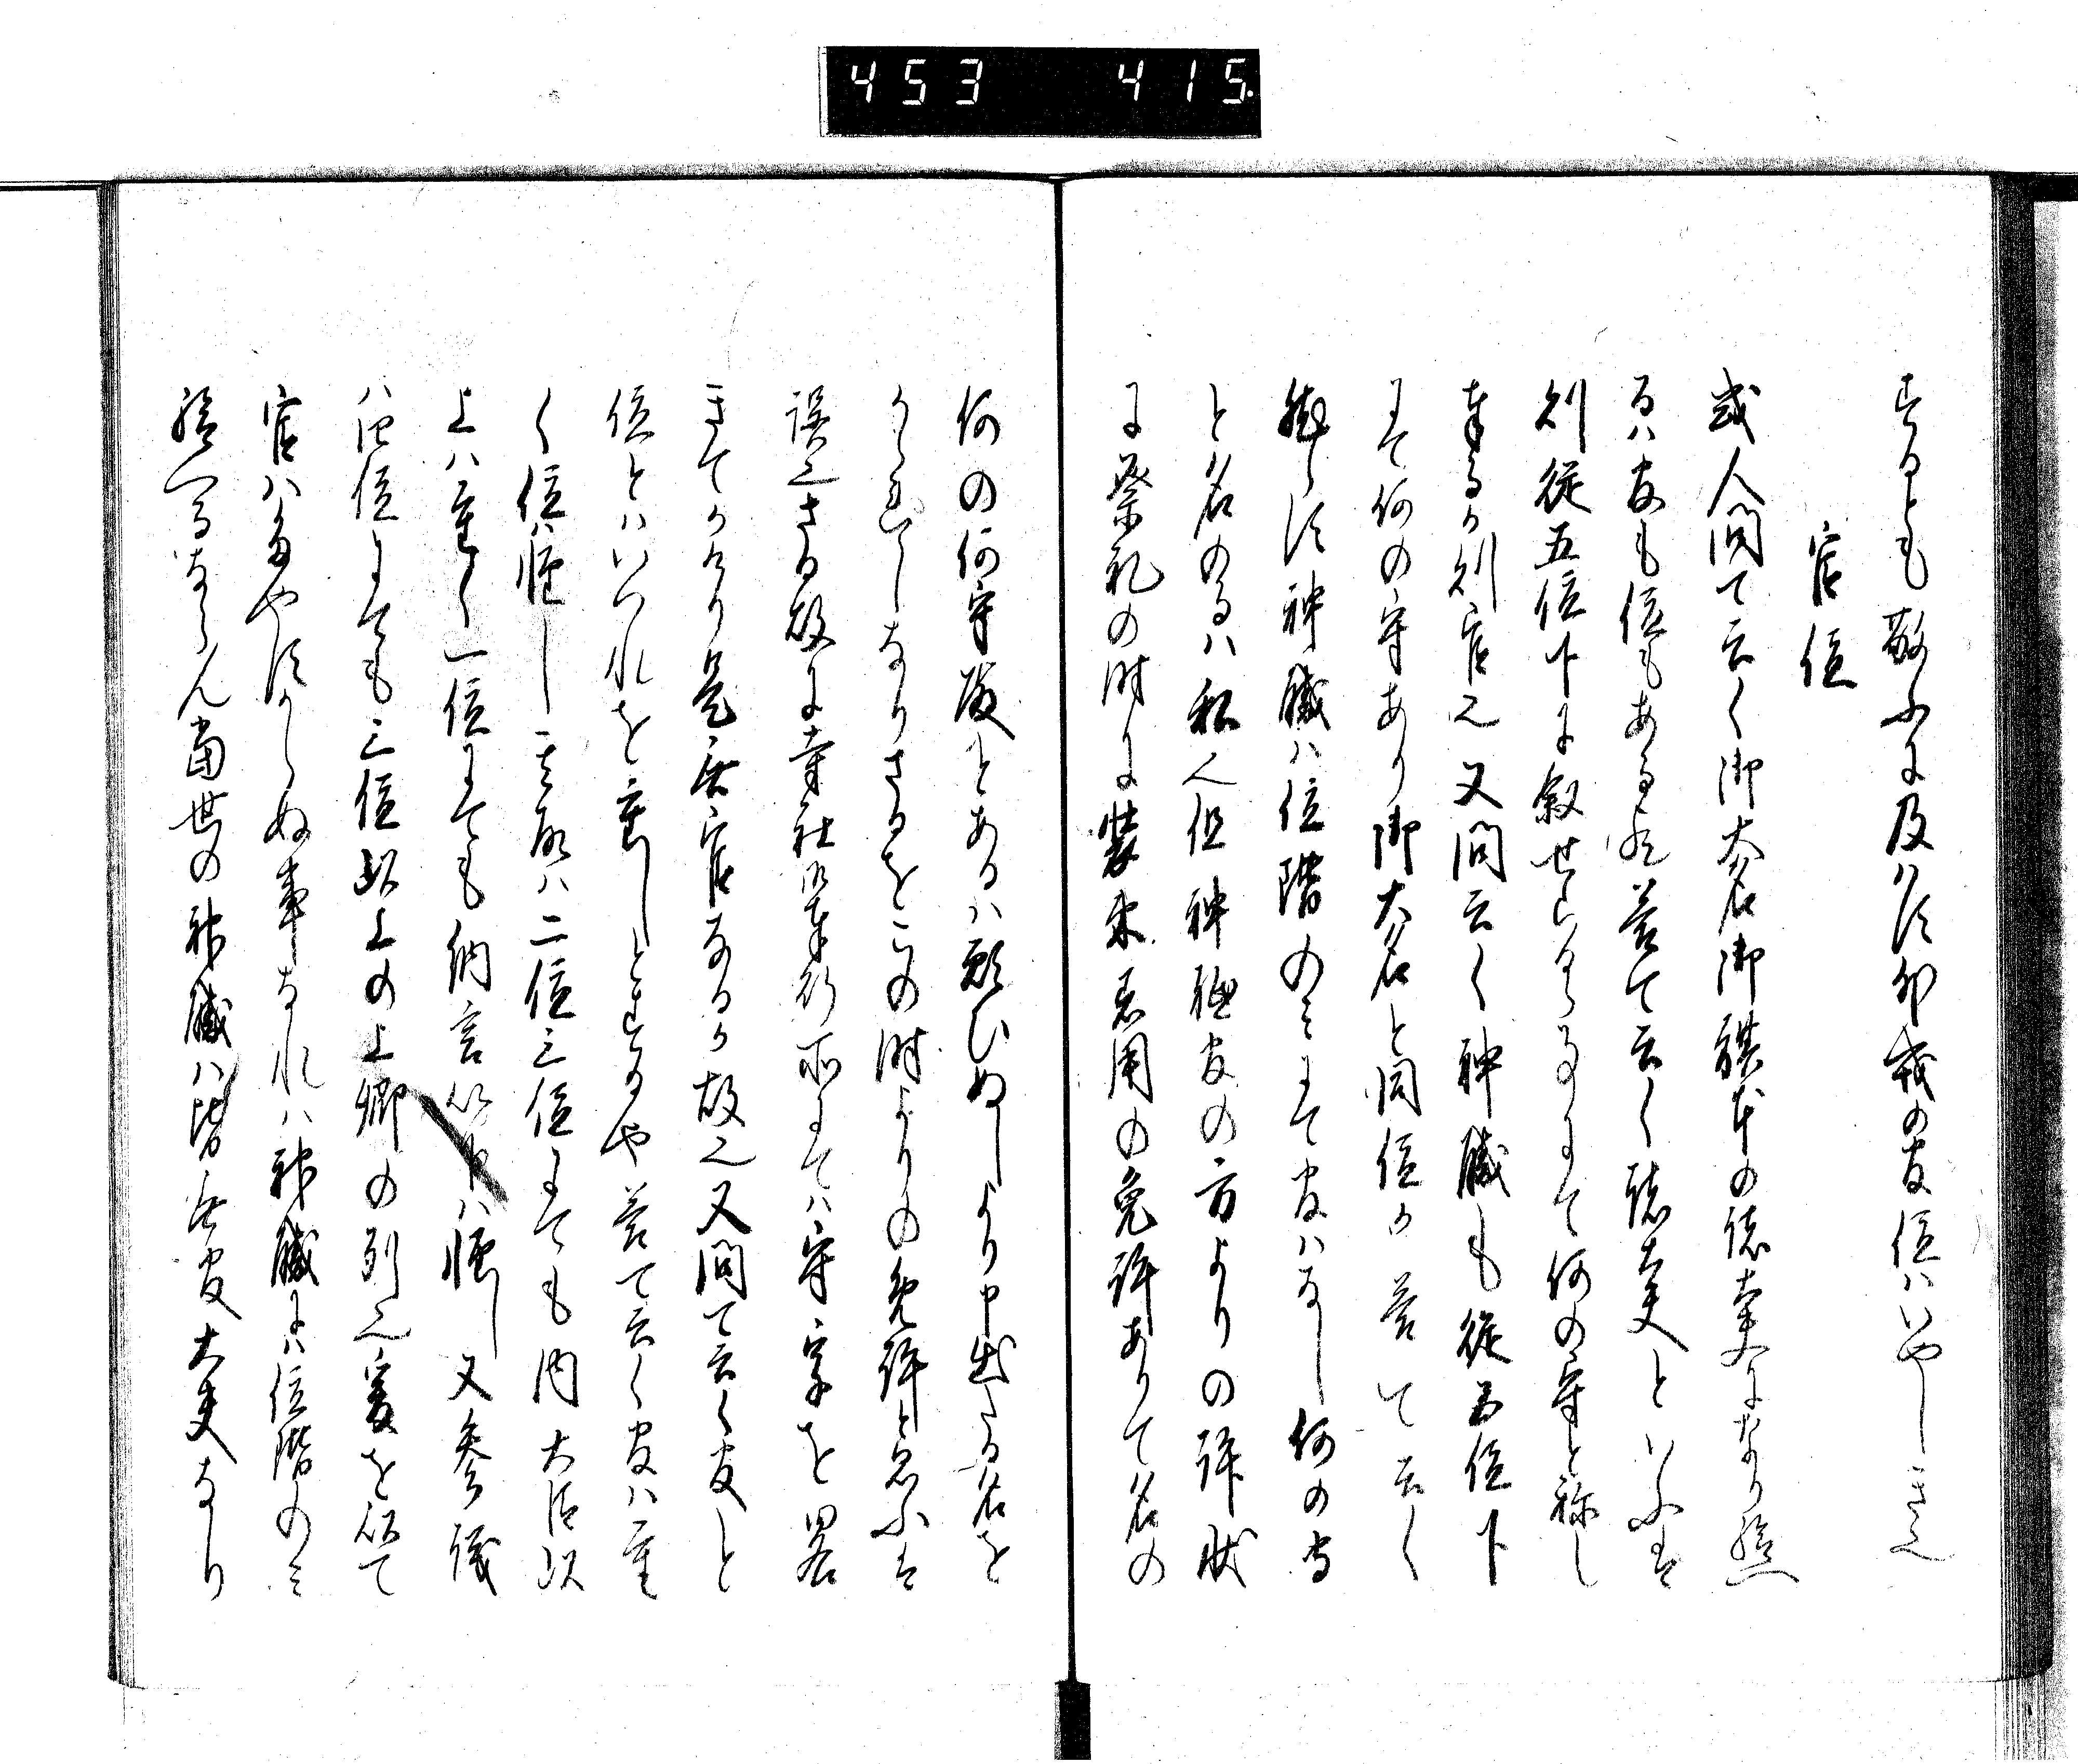 453 415.
するとも敢ふに及はす卯哉の官位はいやしき也
官位
或人問て云く御大名御旗本の諸大夫になり給へ
るは官も位もある歟答て云く諸大夫といふは
則従五位下に叙せらるゝ事にて何の守と称し
奉るか則官也又問云く神職も従五位下
にて何の守あり御大名と同位か答て云く
然らす神職は位階のみにて官はなし何の守
と名のるは私也但神祇官の方よりの許状
に祭礼の時に装束着用の免許ありて名の
何の何守殿とあるは願ひぬしより申出たる名を
しるしなりさるをこの時よりの免許と思ふは
誤也さる故に寺社御奉行所にては守字を略
きてかけり是無官なるか故也又問て云く官と
位とはいつれを重しとするや答て云く官は重
く位は軽し其故は二位三位にても内大臣以
上は重く一位にても納言以下は軽し又参議
は四位にても三位以上の上卿の列也爰を以て
官はたやすからぬ事なれは神職には位階のみ
給へるならん当世の神職は皆無官大夫なり